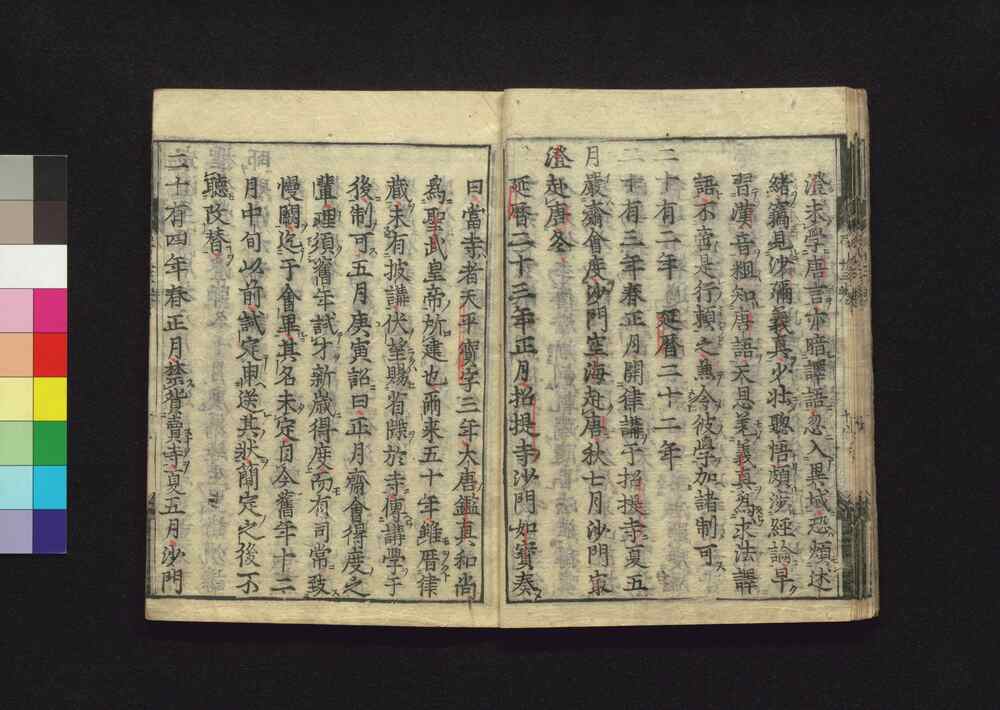 澄求學唐言亦暗譯語忽入異域恐煩述
緒竊見沙彌義眞少壯聰悟頗涉經論早
習漢音粗知唐語天恩差義眞為求法譯
語不啻是行頼之令彼學加諸制可
二十有二年 延暦二十二年
二十有三年春正月開律講于招提寺夏五
月嚴齋會度沙門空海赴唐秋七月沙門最
澄赴唐冬
延暦二十三年正月招提寺沙門如寳奏
曰當寺者天平寳字三年大唐鑑真和尚
爲聖武皇帝所建也爾来五十年雖暦律
藏未有披講伏望賜省牒於寺便講學于
後制可五月庚寅詔曰正月齋會得度之
輩理須舊年試才新歳得度而有司常致
慢闕迄于會畢其名未定自今舊年十二
月中旬以前試定申送其狀簡定之後不
聽改替
二十有四年春正月禁賣寺夏五月沙門